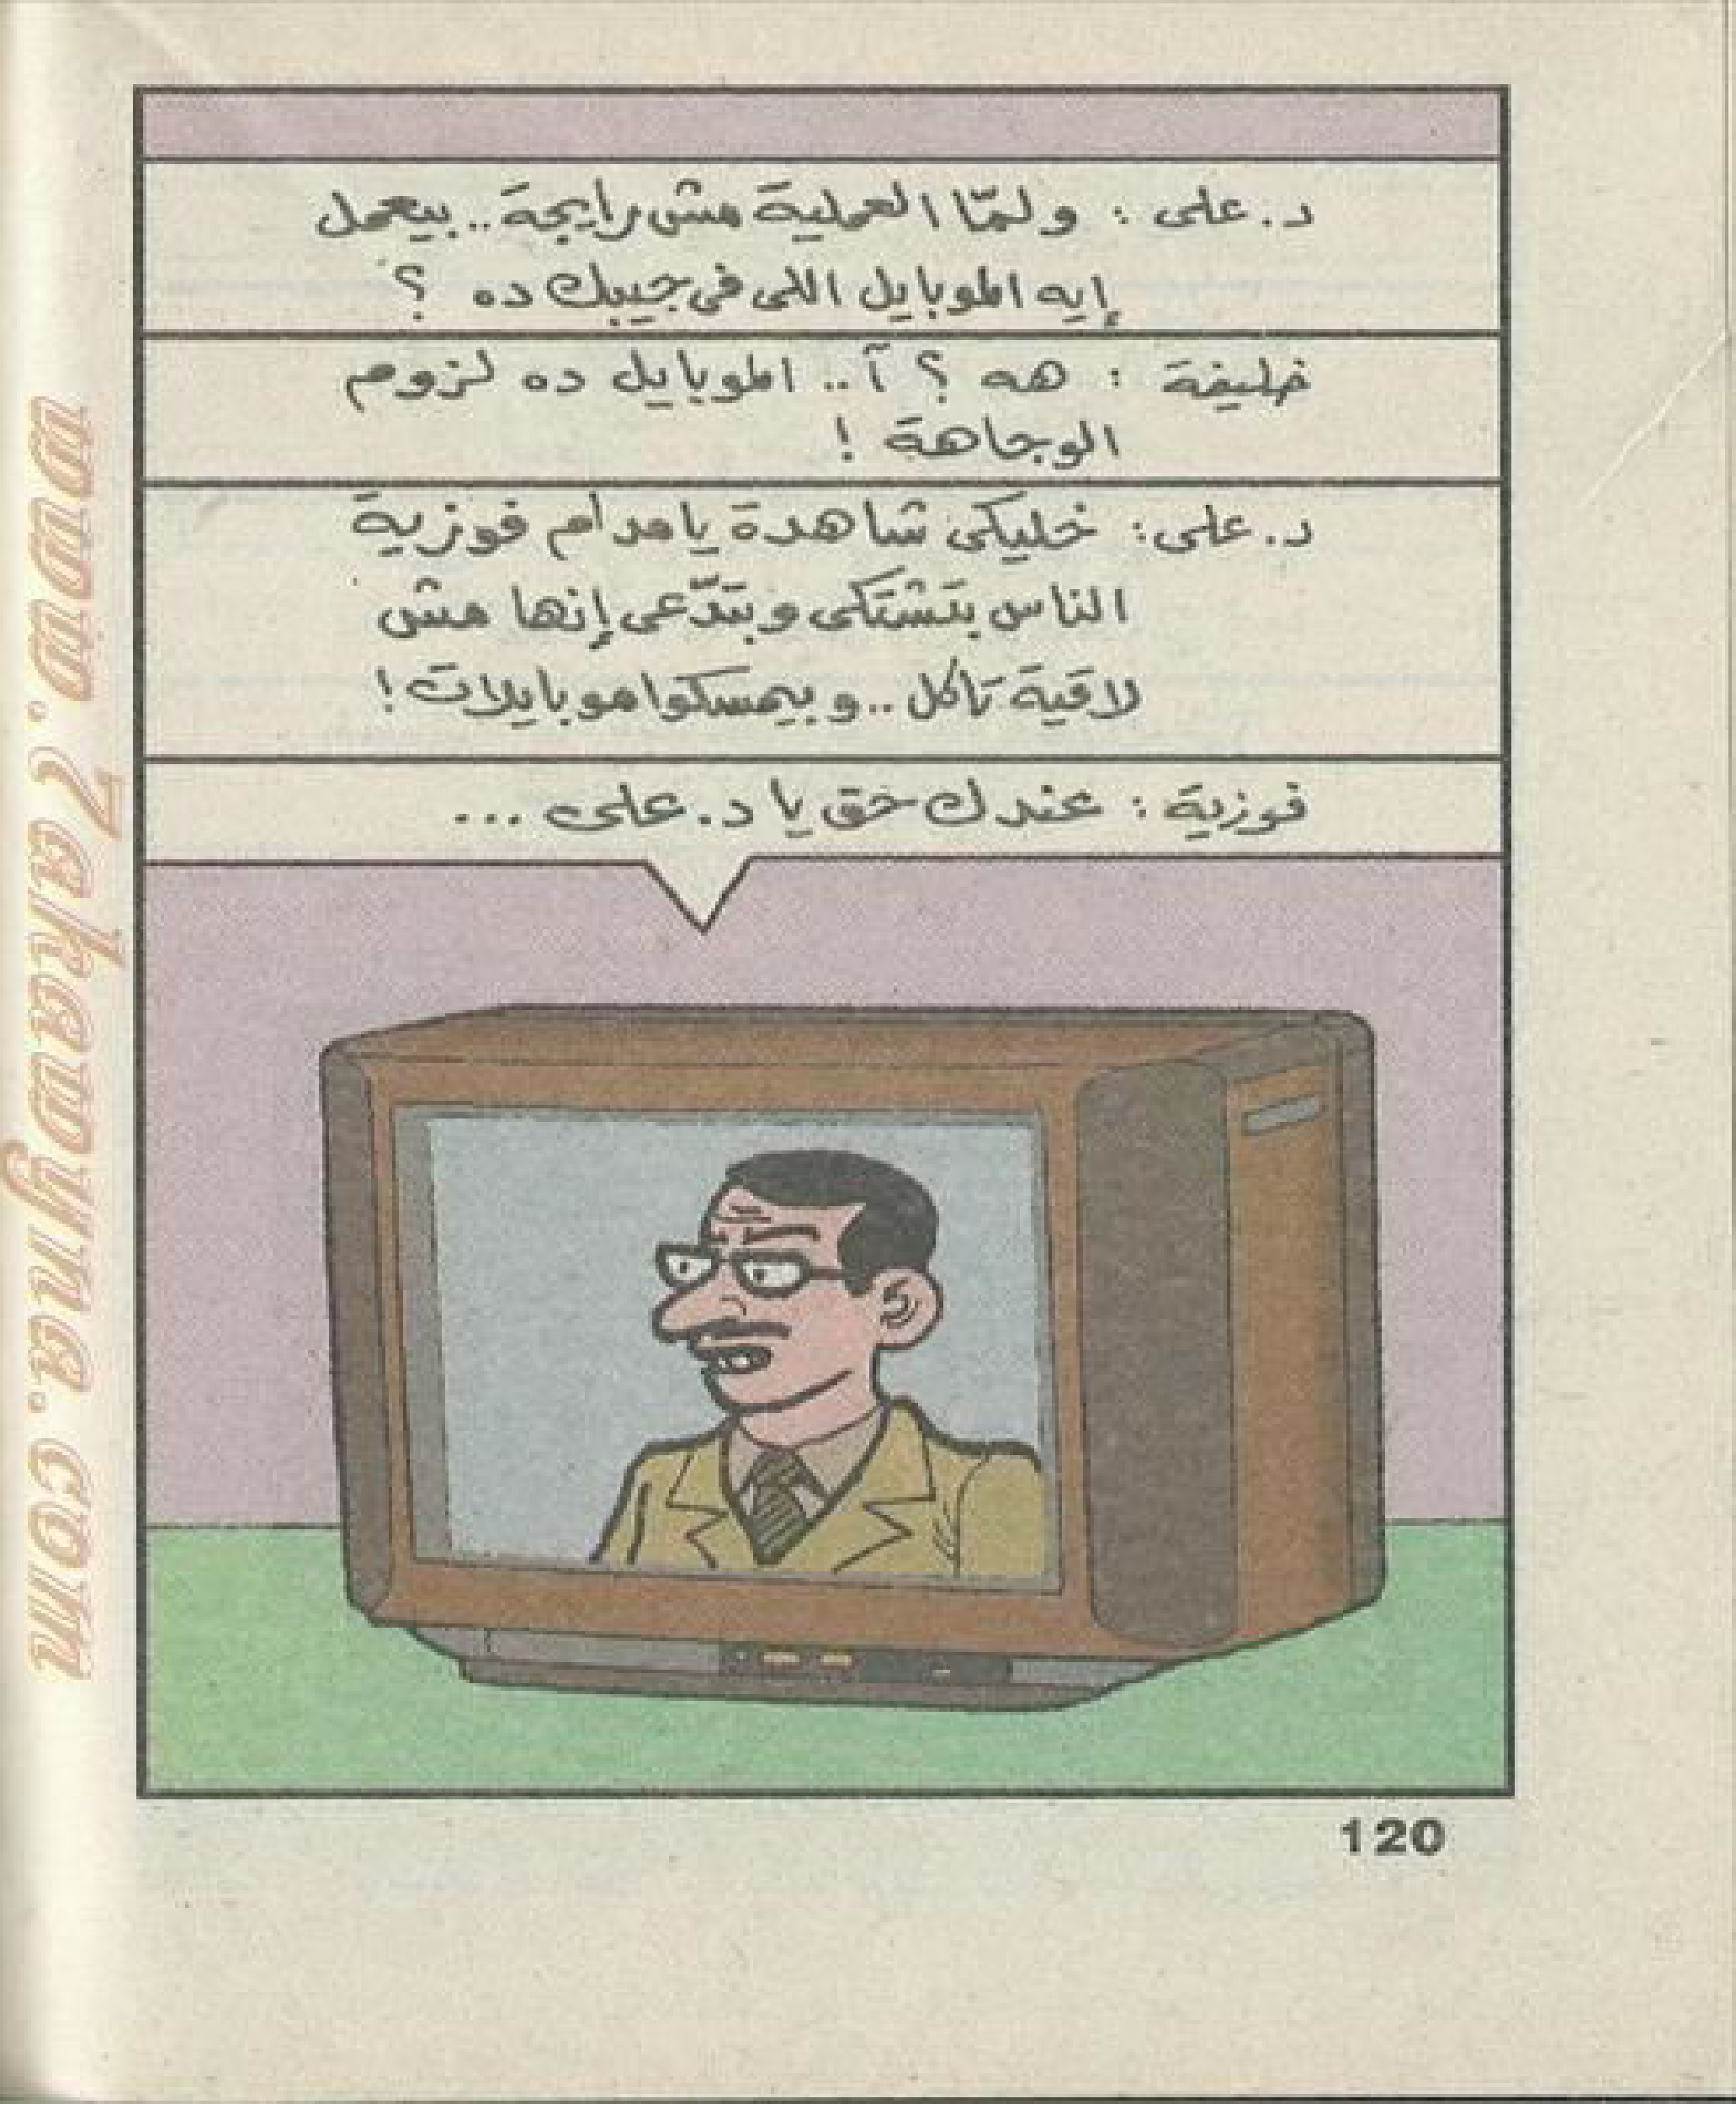 د. على : ولمّا العملية مش رايجة.. بيعمل
إيه الموبايل اللى فى جيبك ده ؟
خليفة : هه ؟ آ.. الموبايل ده لزوم
الوجاهة !
د. على : خليكى شاهدة يا مدام فوزية
الناس بتشتكى وبتدّعى إنها مش
لاقية تاكل.. وبيمسكوا موبايلات !
فوزية : عندك حق يا د. على ...
120
www.7ekawyna.com